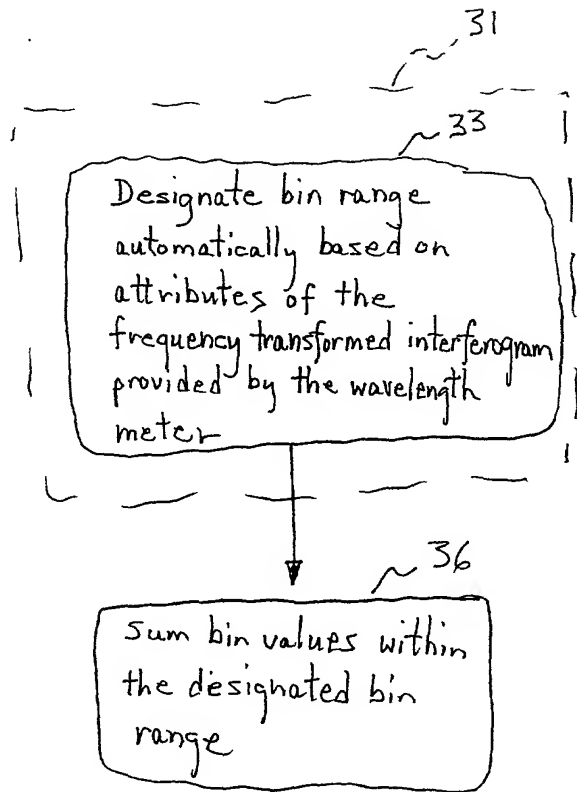 31
33
Designate bin range
automatically based on
attributes of the
frequency transformed interferogram
provided by the wavelength
meter
36
Sum bin values within
the designated bin
range